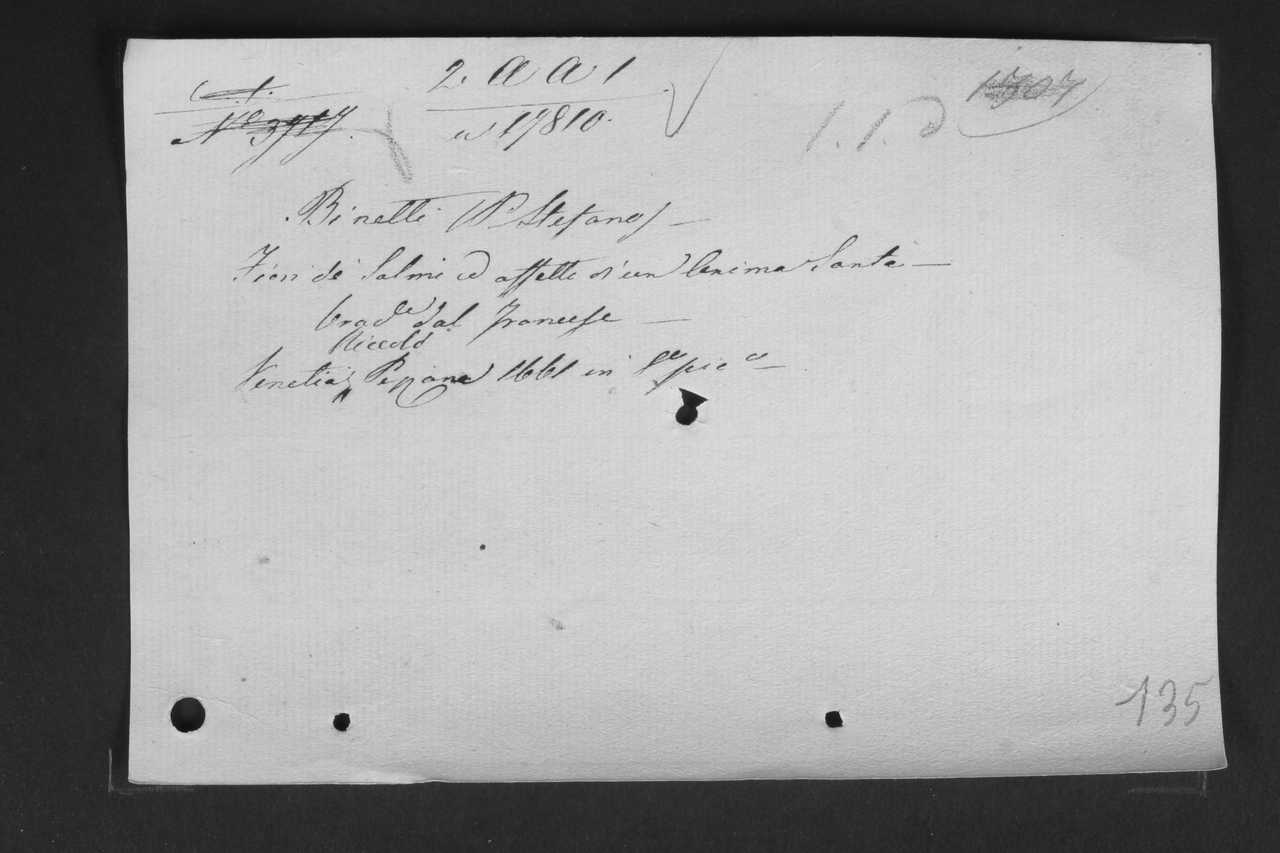 2. A A 1
N.º 3717
a 17810.
1.1.D
1707
Binetti (P. Stefano) —
Fiori de Salmi ed affetti d'un Anima Santa —
Trad.e dal Francese —
Niccolò
Venetia, Pezzana 1661 in 8.º pic.º —
135